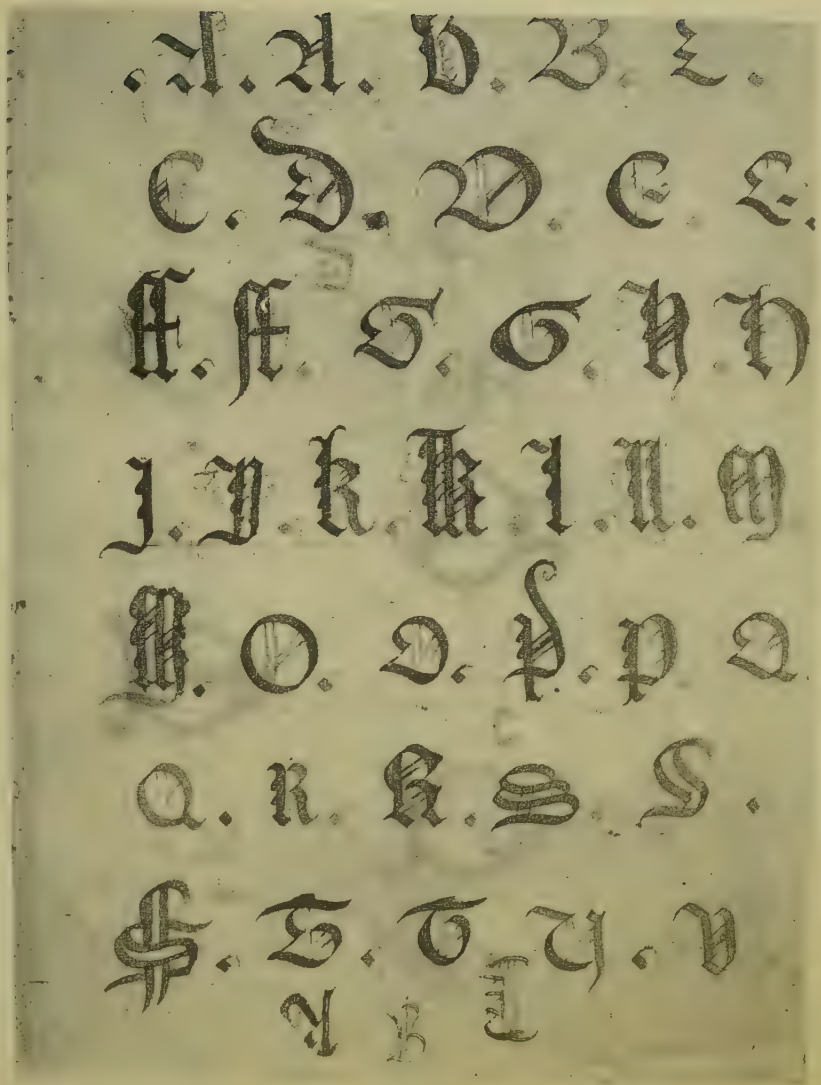 . A . A . B . B . C .
C . D . D . E . E .
F . F . G . G . H . H
J . Y . k . K . L . L . M
M . O . O . P . P . Q
Q . R . R . S . S .
S . T . T . U . V
A B